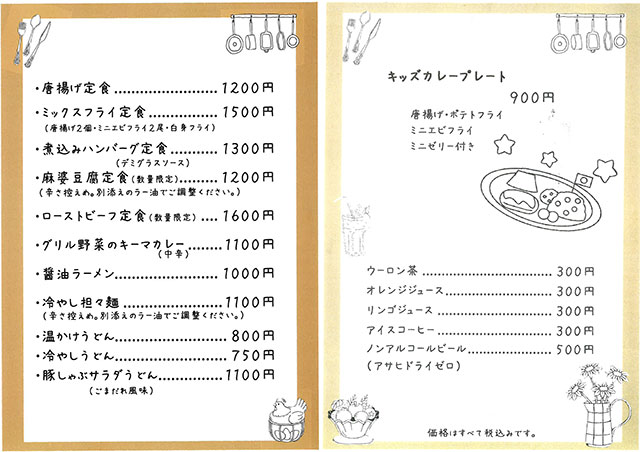 ・唐揚げ定食......................1200円
・ミックスフライ定食...............1500円
(唐揚げ2個・ミニエビフライ2尾・白身フライ)
・煮込みハンバーグ定食............1300円
(デミグラスソース)
・麻婆豆腐定食(数量限定).........1200円
(辛さ控えめ。別添えのラー油でご調整ください。)
・ローストビーフ定食(数量限定)....1600円
・グリル野菜のキーマカレー.......1100円
(中辛)
・醤油ラーメン.....................1000円
・冷やし担々麺.....................1100円
(辛さ控えめ。別添えのラー油でご調整ください。)
・温かけうどん......................800円
・冷やしうどん......................750円
・豚しゃぶサラダうどん.............1100円
(ごまだれ風味)
キッズカレープレート
900円
唐揚げ・ポテトフライ
ミニエビフライ
ミニゼリー付き
ウーロン茶.........................300円
オレンジジュース...................300円
リンゴジュース.....................300円
アイスコーヒー.....................300円
ノンアルコールビール...............500円
(アサヒドライゼロ)
価格はすべて税込みです。